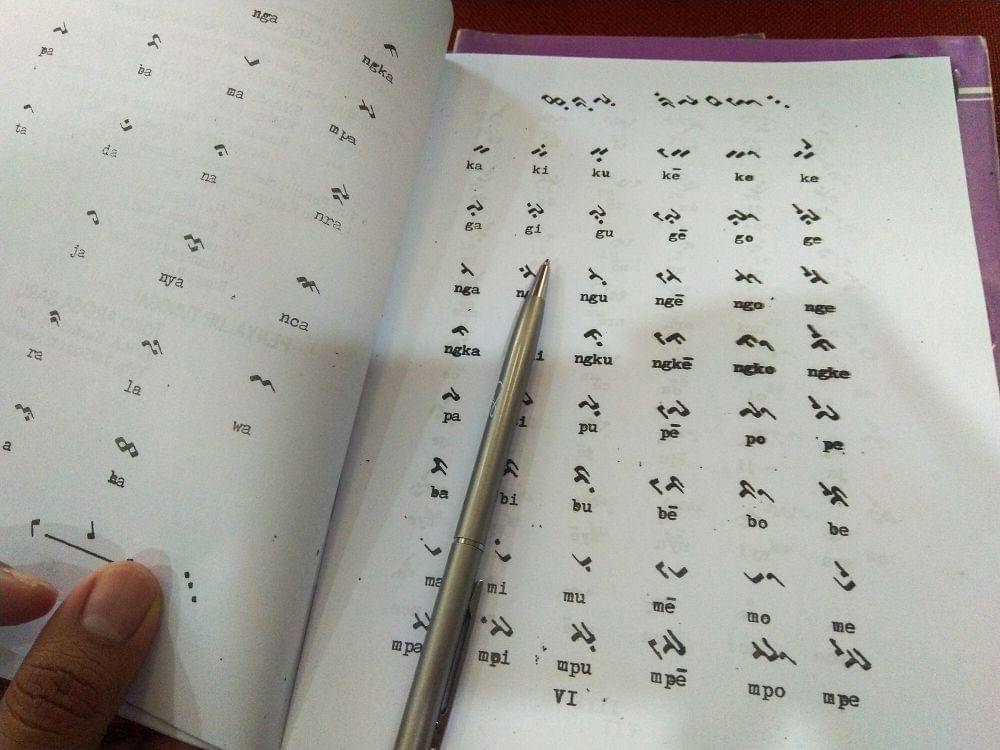 nga ngka
ᨄ ᨅ ᨆ ᨇ
pa ba ma mpa
ᨈ ᨉ ᨊ ᨋ
ta da na nra
ᨍ ᨎ ᨏ
ja nya nca
ᨑ ᨒ ᨓ
ra la wa
ᨕ ᨖ
a ha
ᨀ ᨀᨗ ᨀᨘ ᨀᨙ ᨀᨚ ᨀᨛ
ka ki ku kē ko ke
ᨁ ᨁᨗ ᨁᨘ ᨁᨙ ᨁᨚ ᨁᨛ
ga gi gu gē go ge
ᨂ ᨂᨗ ᨂᨘ ᨂᨙ ᨂᨚ ᨂᨛ
nga ngu ngē ngo nge
ᨃ ᨃᨘ ᨃᨙ ᨃᨚ ᨃᨛ
ngka ngku ngkē ngko ngke
ᨄ ᨄᨘ ᨄᨙ ᨄᨚ ᨄᨛ
pa pu pē po pe
ᨅ ᨅᨗ ᨅᨘ ᨅᨙ ᨅᨚ ᨅᨛ
ba bi bu bē bo be
ᨆ ᨆᨗ ᨆᨘ ᨆᨙ ᨆᨚ ᨆᨛ
ma mi mu mē mo me
ᨇ ᨇᨗ ᨇᨘ ᨇᨙ ᨇᨚ ᨇᨛ
mpa mpi mpu mpē mpo mpe
VI